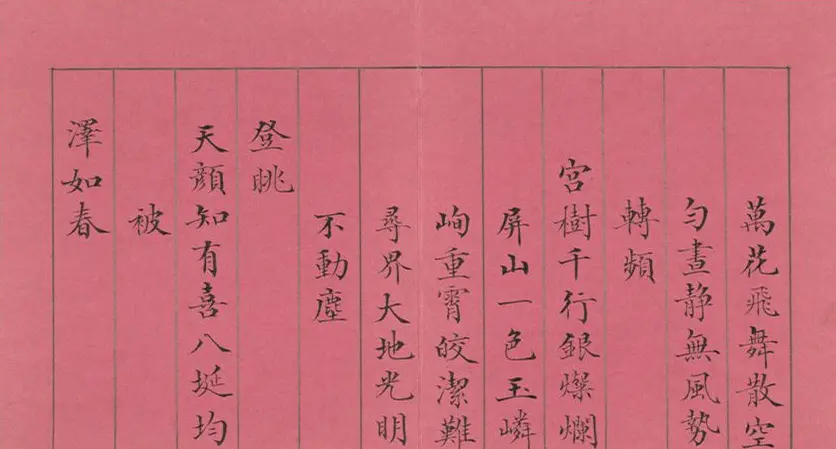 萬花飛舞散空
勻晝静無風勢
轉頻
宮樹千行銀燦爛
屏山一色玉嶙
峋重霄皎潔難
尋界大地光明
不動塵
登眺
天顔知有喜八埏均
被
澤如春